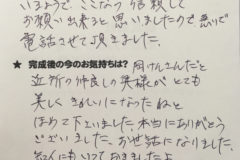 いるようで ここなら 信頼して
お願い出来ると思いましたので
電話させて頂きました。
★ 完成後の今のお気持ちは？
近所の仲良しの奥様がとても
美しく きれいになったねと
ほめて下さいました。本当にありがとう
ございました。お世話になりました。